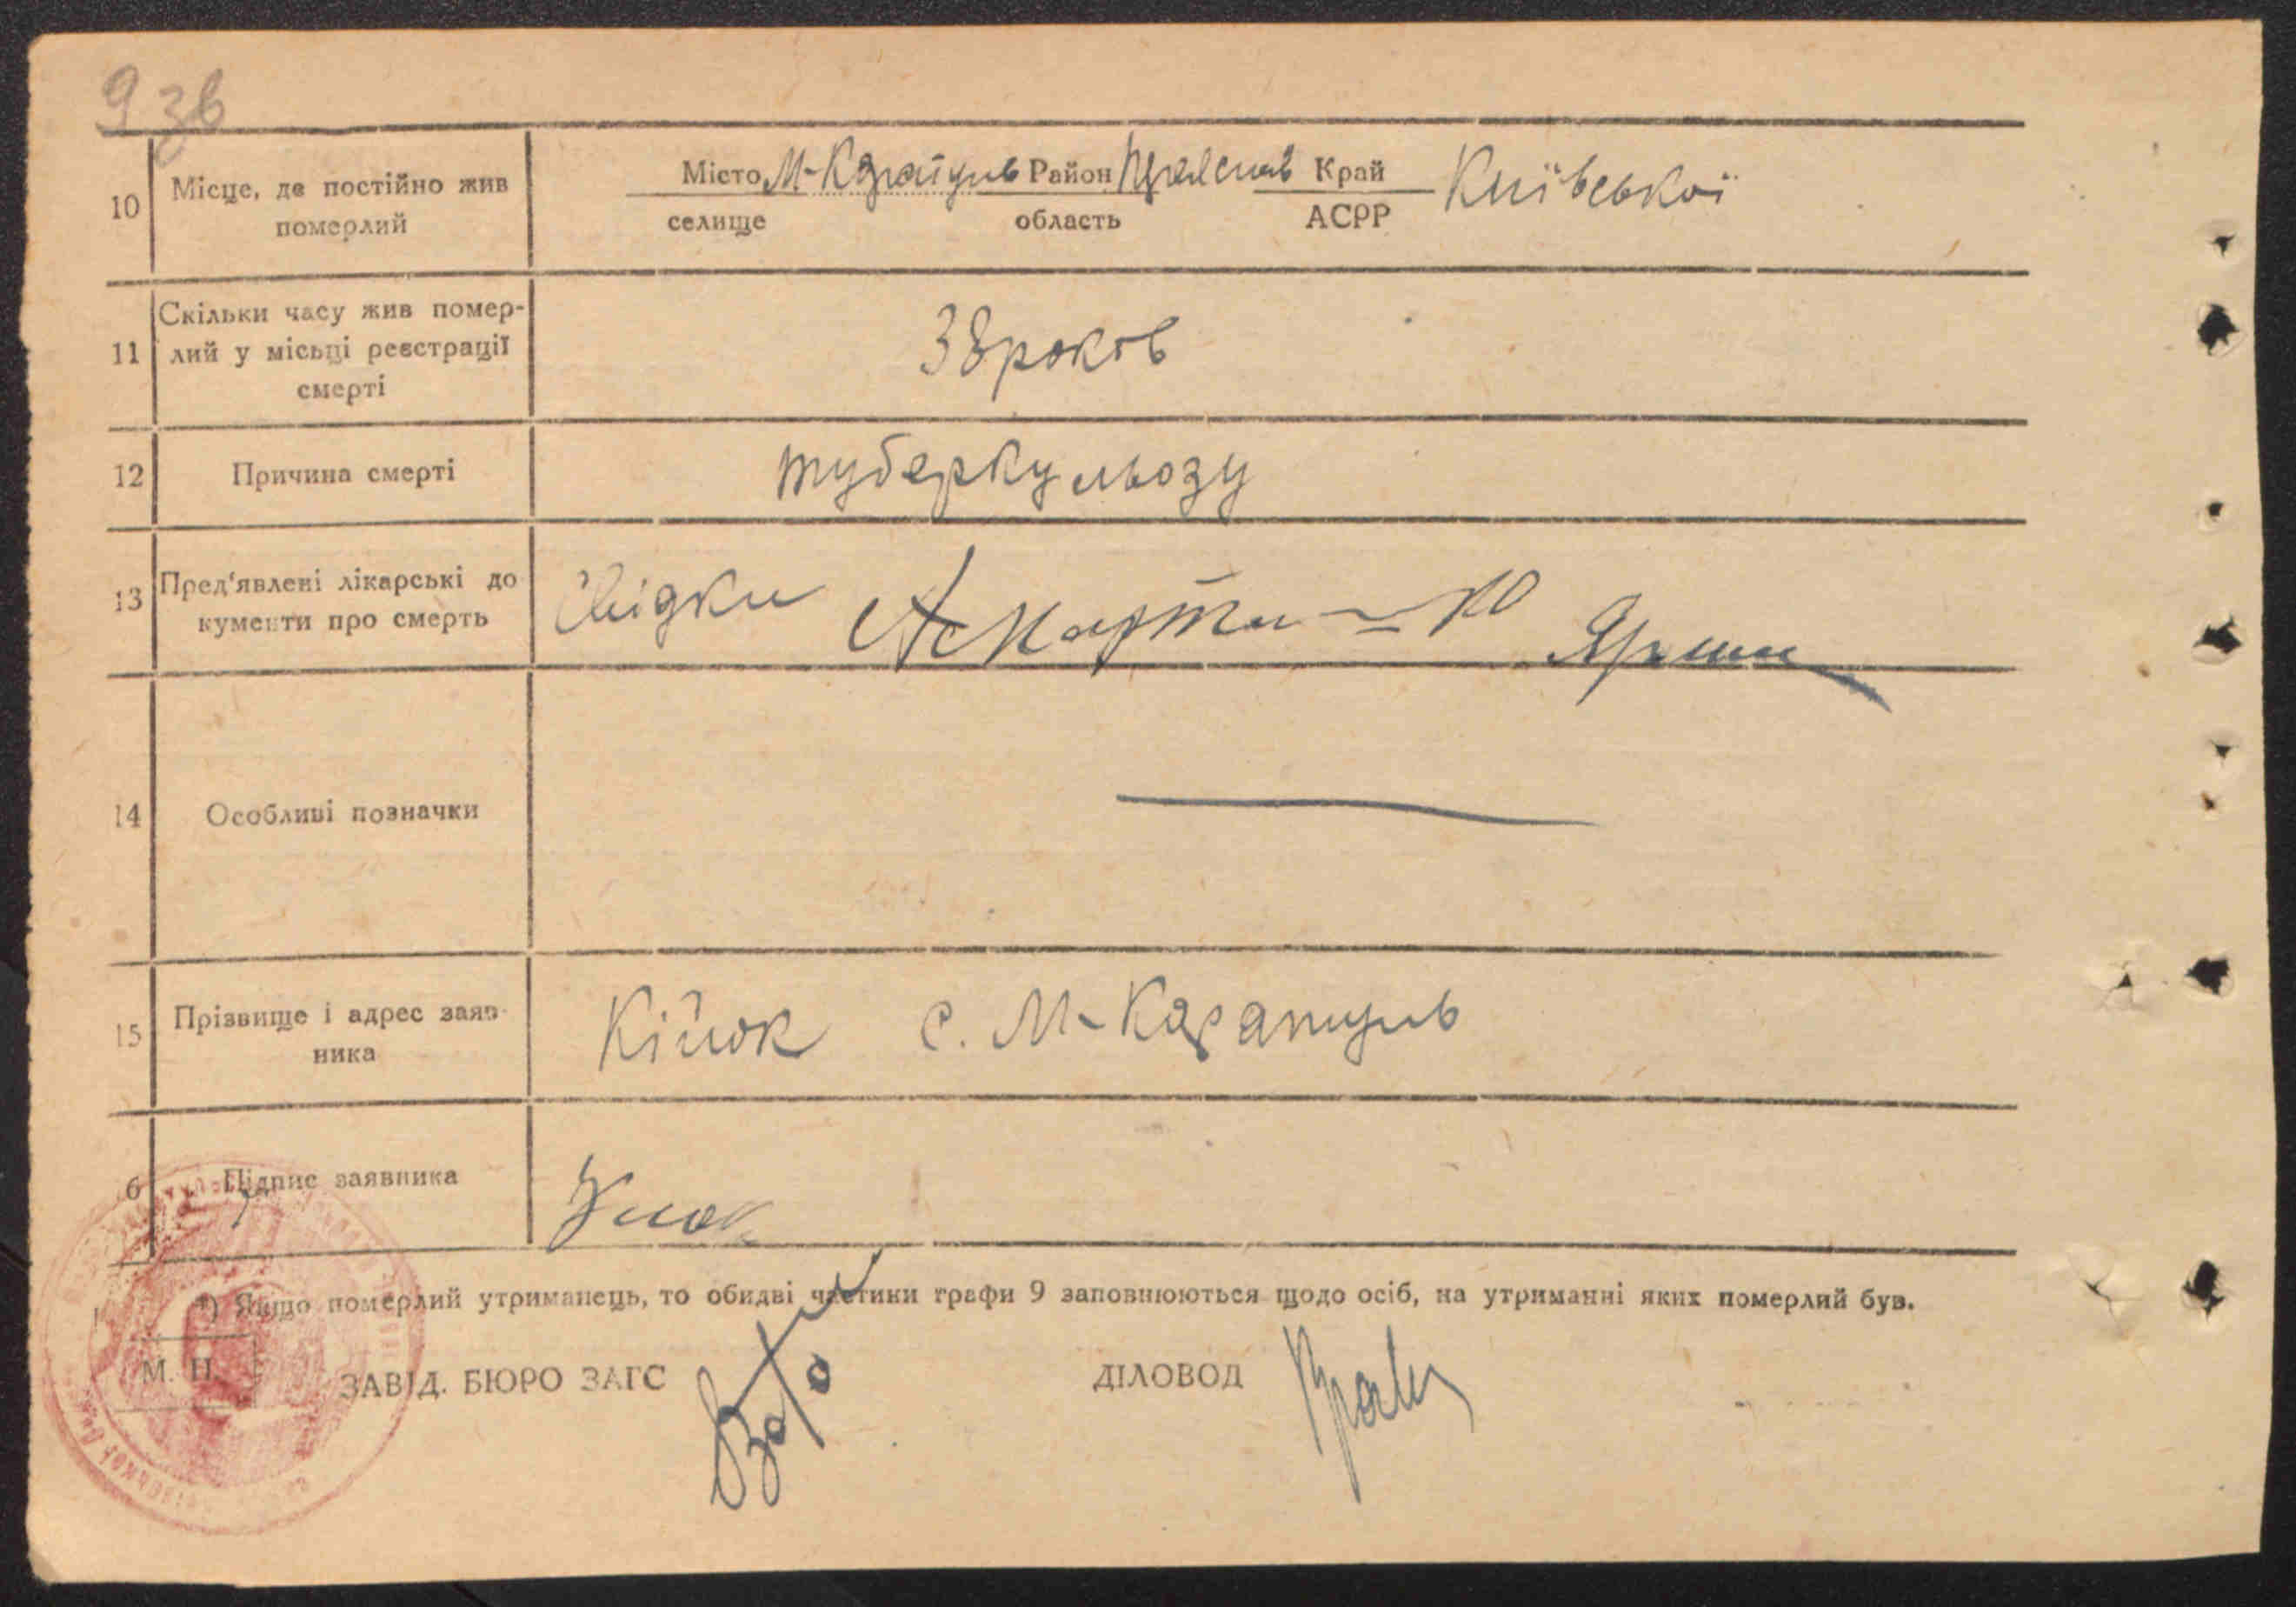 9 зв
10 Місце, де постійно жив померлий
Місто М-Каратуль Район Край Київської
селище область АСРР
11 Скільки часу жив помер-
лий у місьці реєстрації
смерті
38 років
12 Причина смерті туберкульозу
13 Пред'явлені лікарські до
кументи про смерть
Свідки
14 Особливі позначки
15 Прізвище і адрес заяв-
ника
Кійок с. М-Каратуль
6 Підпис заявника
*) Якщо померлий утриманець, то обидві частини графи 9 заповнюються щодо осіб, на утриманні яких померлий був.
М. П.
ЗАВІД. БЮРО ЗАГС ДІЛОВОД